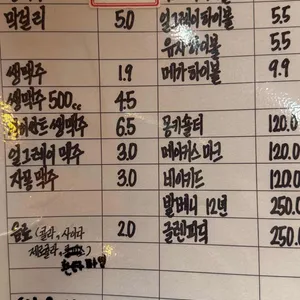 막걸리 5.0
얼그레이 하이볼 5.5
유자 하이볼 5.5
메가 하이볼 9.9
생맥주 1.9
생맥주 500cc 4.5
쌩맥주 6.5
얼그레이 맥주 3.0
자몽 맥주 3.0
음료 (콜라, 사이다 2.0
제로콜라,
몽키숄더 120.0
메이커스 마크 120.0
네이키드 120.0
발메니 12년 250.0
글렌피딕 250.0